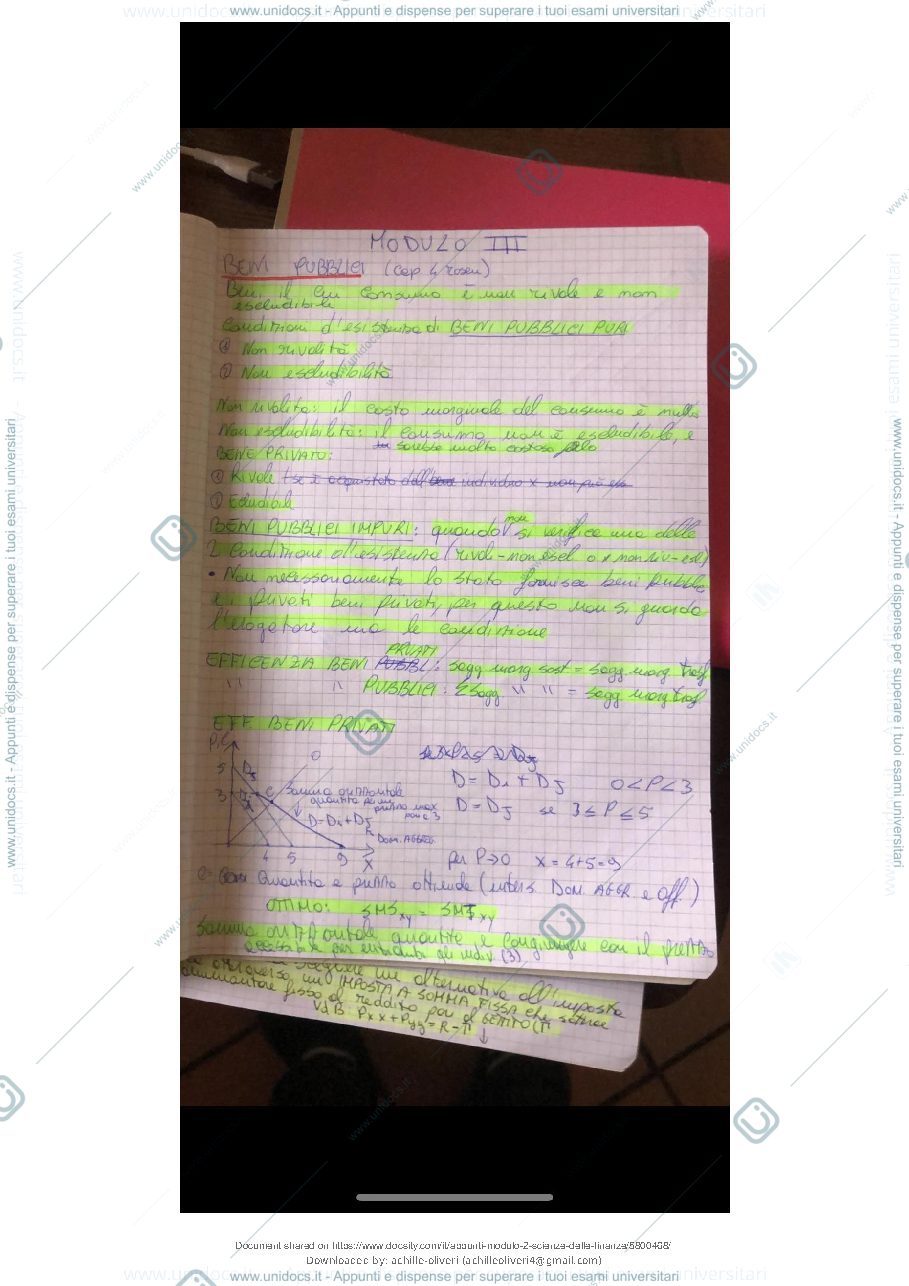 www.unidocs.it - Appunti e dispense per superare i tuoi esami universitari
MODULO III
BENI PUBBLICI (cap 4 rosen)
Beni il cui consumo è non rivale e non
escludibile
Condizioni d'esistenza di BENI PUBBLICI PURI
① Non rivalità
② Non escludibilità
Non rivalità: il costo marginale del consumo è nullo
Non escludibilità: il consumo non è escludibile, e
sarebbe molto costoso farlo
BENE PRIVATO:
① Rivale
② Escludibile
BENI PUBBLICI IMPURI: quando non si verifica una delle
2 condizione d'esistenza (rivali-non escl o x non riv-escl)
• Non necessariamente lo stato fornisce beni pubblici
e i privati beni privati, per questo non si guarda
l'erogatore ma le condizione
PRIVATI
EFFICENZA BENI PUBBL: sagg marg sost = sagg marg trasf
" " PUBBLICI: Σsagg " " = sagg marg trasf
EFF BENI PRIVATI
P, C
5 DJ
O
D = Di + DJ 0<P<3
3 e Somma orizzontale
quantità per un
prezzo max
pari a 3
D = DJ se 3 ≤ P ≤ 5
D=Di+DJ
Dom. AGGREG.
4 5 9 X
per P→0 X = 4+5=9
e = Quantità e prezzo ottimale (inters. Dom. AGGR e Off.)
OTTIMO: SMSxy = SMTxy
Somma orizzontale quantità e congiungere con il prezzo
accessibile per entrambi gli indiv. (3)
scegliere un alternativa all'imposta
attraverso un IMPOSTA A SOMMA FISSA che sottrae
ammontare fisso al reddito pari al GETTITO (T
VdB: Pxx + Pyy = R - T
Document shared on https://www.docsity.com/it/appunti-modulo-2-scienze-delle-finanze/5800408/
Downloaded by: achille-oliveri (achilleoliveri4@gmail.com)
www.unidocs.it - Appunti e dispense per superare i tuoi esami universitari